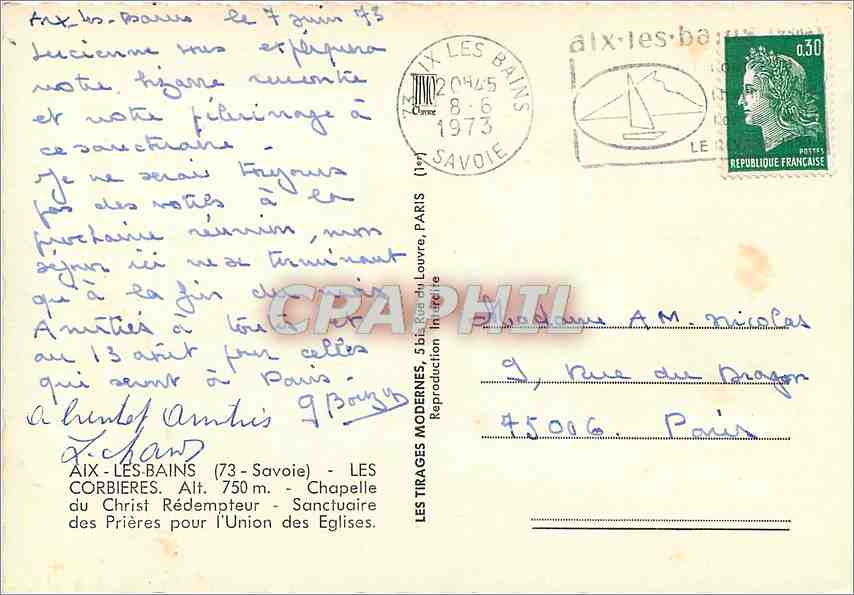 Aix-les-Bains le 7 juin 73
Lucienne vous expliquera
notre bizarre rencontre
et notre pèlerinage à
ce sanctuaire -
Je ne serai toujours
pas des vôtres à la
prochaine réunion, mon
séjour ici ne se terminant
qu'à la fin du mois
Amitiés à toutes et
au 13 août pour celles
qui seront à Paris -
A bientôt Amitiés
AIX-LES-BAINS (73-Savoie) - LES
CORBIERES. Alt. 750 m. - Chapelle
du Christ Rédempteur - Sanctuaire
des Prières pour l'Union des Eglises.
LES TIRAGES MODERNES, 5 bis Rue du Louvre, PARIS (1er)
Reproduction Interdite
73 AIX LES BAINS
20H45
8-6
1973
SAVOIE
aix-les-bains
LE
0,30
POSTES
REPUBLIQUE FRANÇAISE
CPAPHIL
Madame A M. Nicolas
9, Rue du Dragon
75006. Paris